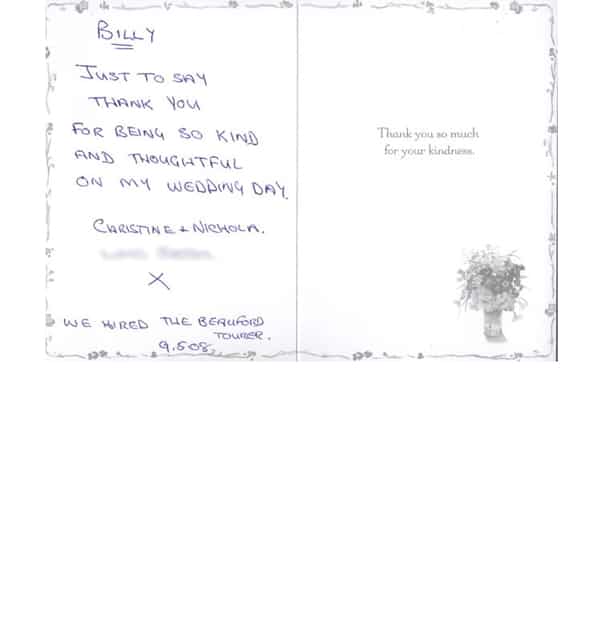 BILLY
JUST TO SAY
THANK YOU
FOR BEING SO KIND
AND THOUGHTFUL
ON MY WEDDING DAY.
CHRISTINE + NICHOLA.
X
WE HIRED THE BEAUFORD
TOURER.
9.508
Thank you so much
for your kindness.